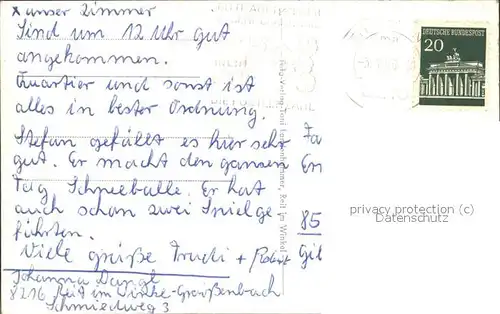 x unser Zimmer
Sind um 12 Uhr gut
angekommen.
Quartier und sonst ist
alles in bester Ordnung.
Stefan gefällt es hier sehr
gut. Er macht den ganzen
Tag Schneebälle. Er hat
auch schon zwei Spielge-
fährten.
Viele grüße Trudi + Robert
Johanna Dangl
8216 Reit im Winkl-Groißenbach
Schmiedweg 3
Fa
En
85
Gil
DEUTSCHE BUNDESPOST
20
privacy protection (c)
Datenschutz